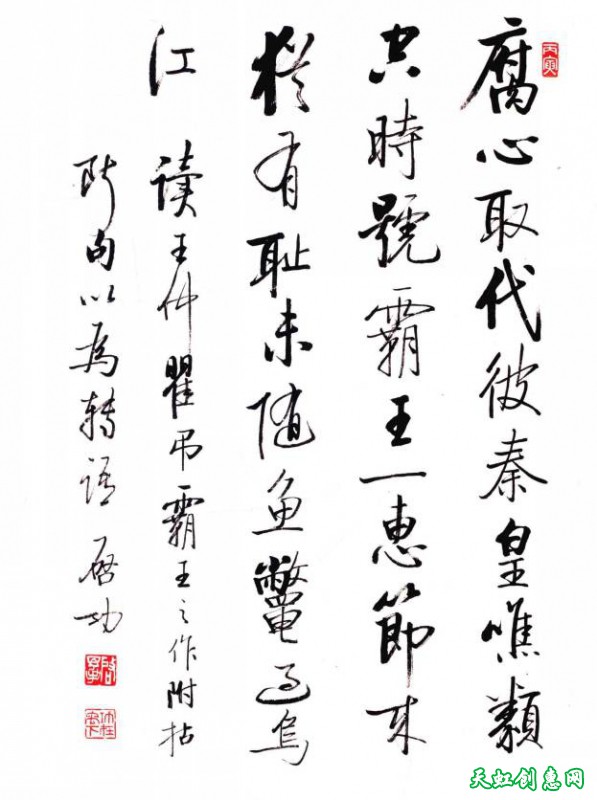 丙寅
腐心取代彼秦皇噍類
空時號霸王一惠節來
猶有耻未隨鱼鼈過烏
江 讀王仲瞿吊霸王之作附拈
句以為轉語 啟功
天虹创惠网